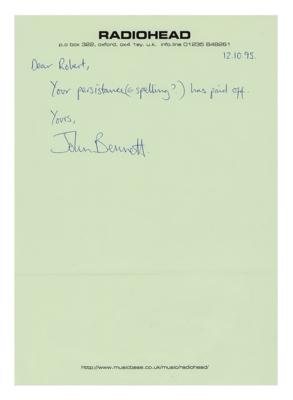 RADIOHEAD
p.o box 322, oxford, ox4 1ey, u.k. info.line 01235 848261
12.10.95.
Dear Robert,
Your persistance(←spelling?) has paid off.
Yours,
John Bennett.
http://www.musicbase.co.uk/music/radiohead/